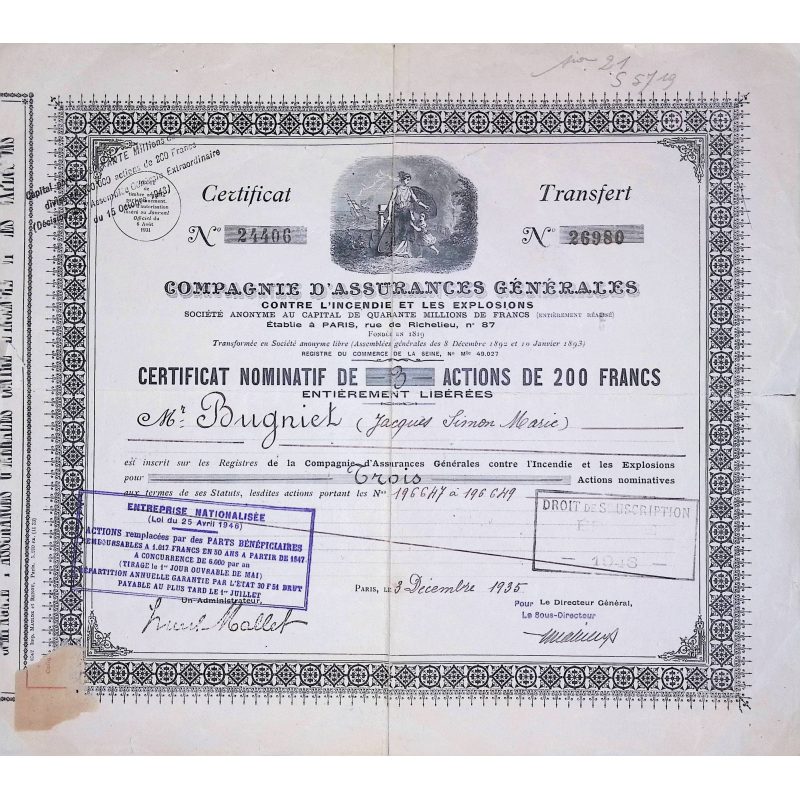 Certificat
Transfert
Nº 24406
Nº 26980
de 200 Francs
Extraordinaire
du 15 Octobre 1943)
Officiel du
8 Août
1931
COMPAGNIE D'ASSURANCES GÉNÉRALES
CONTRE L'INCENDIE ET LES EXPLOSIONS
SOCIÉTÉ ANONYME AU CAPITAL DE QUARANTE MILLIONS DE FRANCS (ENTIÈREMENT RÉALISÉ)
Établie à PARIS, rue de Richelieu, nº 87
FONDÉE EN 1819
Transformée en Société anonyme libre (Assemblées générales des 8 Décembre 1892 et 10 Janvier 1893)
REGISTRE DU COMMERCE DE LA SEINE, Nº Mle 49.027
CERTIFICAT NOMINATIF DE 3 ACTIONS DE 200 FRANCS
ENTIÈREMENT LIBÉRÉES
Mr. Bugniet (Jacques Simon Marie)
est inscrit sur les Registres de la Compagnie d'Assurances Générales contre l'Incendie et les Explosions
pour Trois Actions nominatives
aux termes de ses Statuts, lesdites actions portant les Nos 196647 à 196649
ENTREPRISE NATIONALISÉE
(Loi du 25 Avril 1946)
ACTIONS remplacées par des PARTS BÉNÉFICIAIRES
REMBOURSABLES A 1.017 FRANCS EN 50 ANS A PARTIR DE 1947
A CONCURRENCE DE 6.000 par an
(TIRAGE le 1er JOUR OUVRABLE DE MAI)
RÉPARTITION ANNUELLE GARANTIE PAR L'ÉTAT 30 F 51 BRUT
PAYABLE AU PLUS TARD LE 1er JUILLET
DROIT de SOUSCRIPTION
1943
PARIS, LE 3 Décembre 1935
Un Administrateur,
Pour Le Directeur Général,
Le Sous-Directeur
Mallet